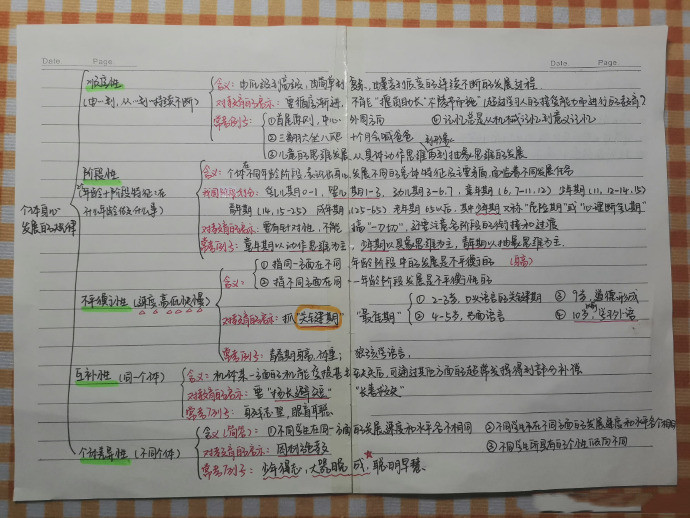 Date. Page. Date. Page.
个体身心发展的规律
顺序性
(由一到,从一到一持续不断)
含义:由低级到高级,由简单到复杂,由量变到质变的连续不断的发展过程.
对教育的启示:要循序渐进,不能"揠苗助长"不陵节而施
常考例子:①首尾原则,中心 外周方向 ④记忆总是从机械记忆到意义记忆
②三翻六坐八爬 十个月会喊爸爸
③儿童的思维发展从具体动作思维再到抽象思维的发展
阶段性
(年龄+阶段特征:在什么年龄做什么事)
含义:个体在不同年龄阶段,表现出身心发展不同的总体特征及主要矛盾,面临着不同发展任务
我国阶段划分:乳儿期0-1,婴儿期1-3,幼儿期3-6.7,童年期(6.7-11,12)少年期(11,12-14,15)
青年期(14,15-25)成年期(25-65)老年期65以后,其中少年期又称"危险期"或"心理断乳期"
对教育的启示:要有针对性,不能搞"一刀切",还要注意各阶段的衔接和过渡
常考例子:童年期以动作思维为主,少年期以具象思维为主,青年期以抽象思维为主.
不平衡性(速度高低快慢)
含义:①指同一方面在不同年龄阶段中的发展是不平衡的
②指不同方面在同一年龄阶段发展是不平衡的
对教育的启示:抓"关键期" "最佳期"
①2-3岁,口头语言的关键期 ③9岁,道德形成
②4-5岁,书面语言 ④10岁前,学习外语
常考例子:青春期身高,体重; 狼孩学语言,
互补性(同一个体)
含义:机体某一方面的机能受损甚至缺失后,可通过其他方面的超常发展得到部分补偿
对教育的启示:要"扬长避短" "长善救失"
常考例子:身残志坚,眼盲耳聪
个体差异性(不同个体)
含义(简答):①不同学生在同一方面的发展速度和水平各不相同 ②不同学生在不同方面的发展速度和水平各不相同
③不同学生所具有的个性倾向不同
对教育的启示:因材施教
常考例子:少年得志,大器晚成,聪明早慧.